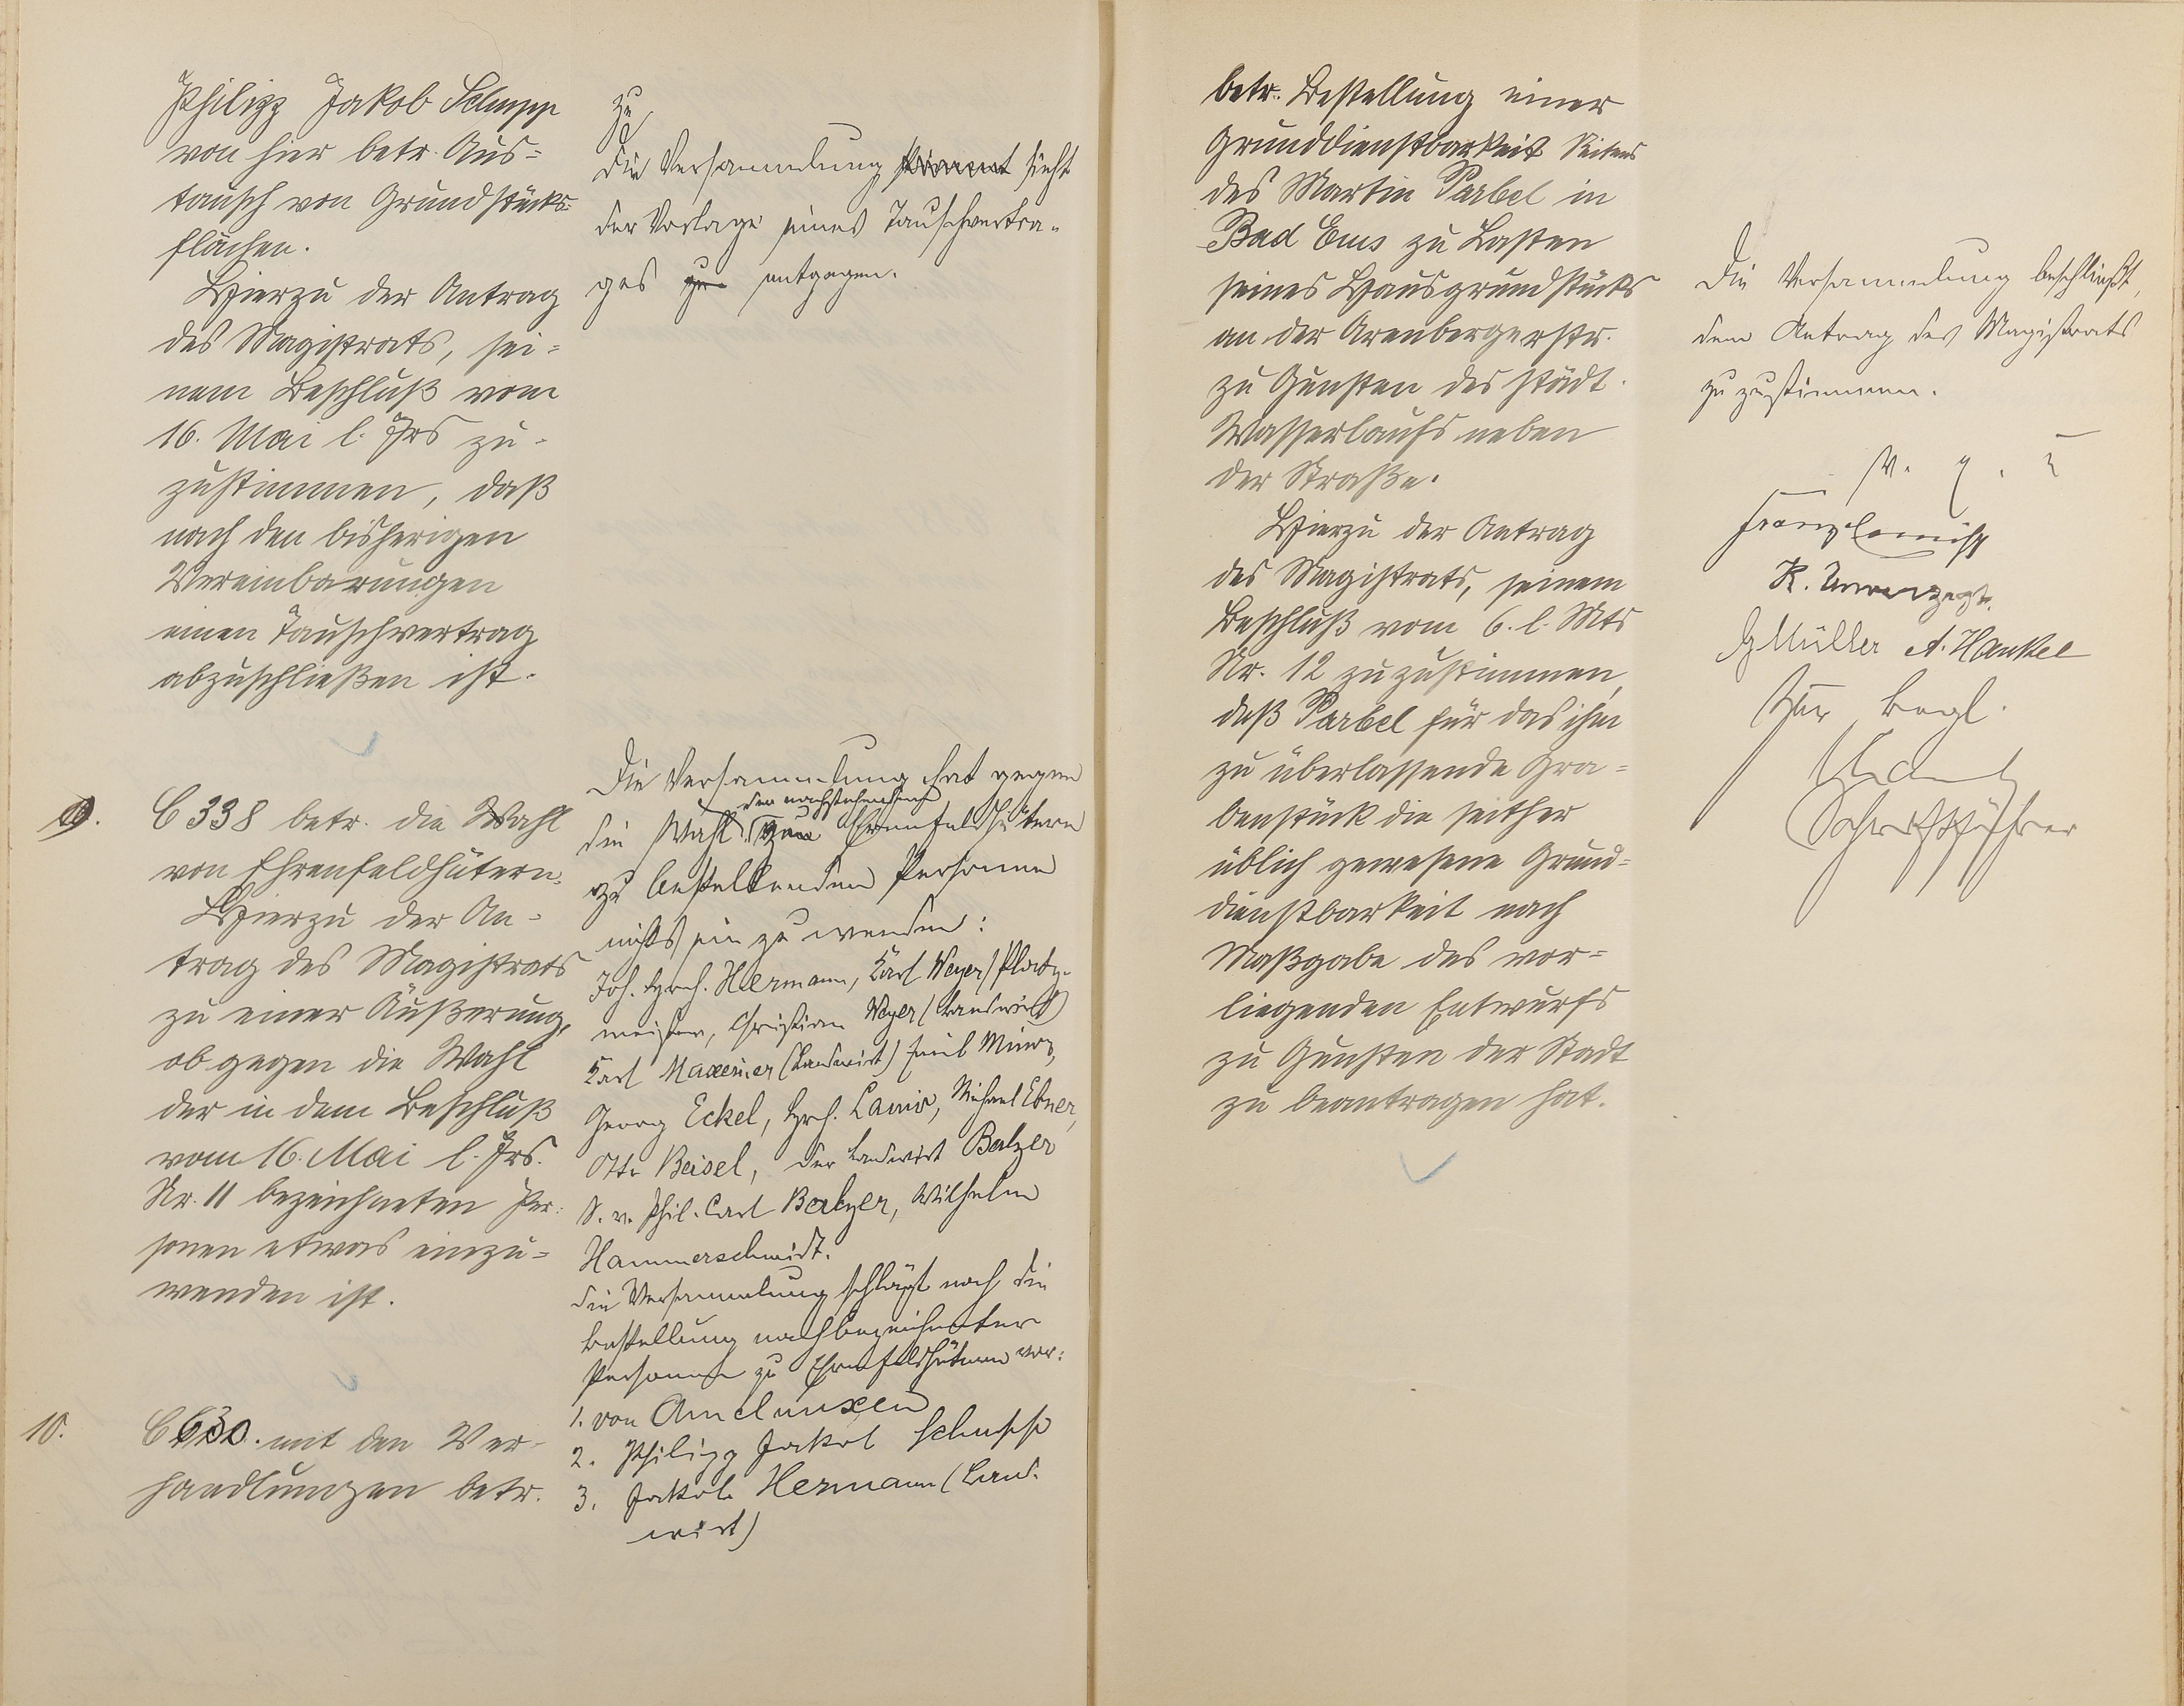 Philipp Jakob Schupp
von hier betr. Aus=
tausch von Grundstücks=
flächen.
Hierzu der Antrag
des Magistrats, sei=
nem Beschluß vom
16. Mai l. Jrs zu=
zustimmen, daß
nach den bisherigen
Vereinbarungen
einen Tauschvertrag
abzuschließen ist.
zu
Die Versammlung stimmt sieht
der Vorlage eines Tauschvertra-
ges zu entgegen.
9.
C 338 betr. die Wahl
von Ehrenfeldhütern.
Hierzu der An=
trag des Magistrats
zu einer Äußerung,
ob gegen die Wahl
der in dem Beschluß
vom 16. Mai l. Jrs.
Nr. 11 bezeichneten Per=
sonen etwas einzu=
wenden ist.
Die Versammlung hat gegen
der nachstehenden
die Wahl zu Ehrenfeldhütern
zu bestellenden Personen
nichts ein zu wenden:
Joh. Hrch. Hermann, Karl Weyer (Platz-
meister, Christian Weyer (Landwirt)
Karl Maxeiner (Landwirt) Emil
Georg Eckel, Hrch. Michael Ebner,
Otto Beisel, der Landwirt Balzer
S. v. Phil. Carl Balzer, Wilhelm
Hammerschmidt.
Die Versammlung schlägt noch die
Bestellung nachbezeichneter
Personen zu Ehrenfeldhütern vor:
1. von Amelunxen
2. Philipp Jakob Schupp
3. Jakob Hermann (Land-
wirt)
10.
C 630. mit den Ver-
handlungen betr.
betr. Bestellung einer
Grunddienstbarkeit Seitens
des Martin Parbel in
Bad Ems zu Lasten
seines Hausgrundstücks
an der Arenbergerstr.
zu Gunsten des städt.
Wasserlaufs neben
der Straße.
Hierzu der Antrag
des Magistrats, seinem
Beschluß vom 6. l. Mts
Nr. 12 zuzustimmen,
daß Parbel für das ihm
zu überlassende Gra=
benstück die seither
üblich gewesene Grund=
dienstbarkeit nach
Maßgabe des vor=
liegenden Entwurfs
zu Gunsten der Stadt
zu beantragen hat.
Die Versammlung beschließt,
dem Antrag des Magistrats
zuzustimmen.
v. g. u
Franz
K.
G Müller A. Hankel
Zur Begl.
Schriftführer